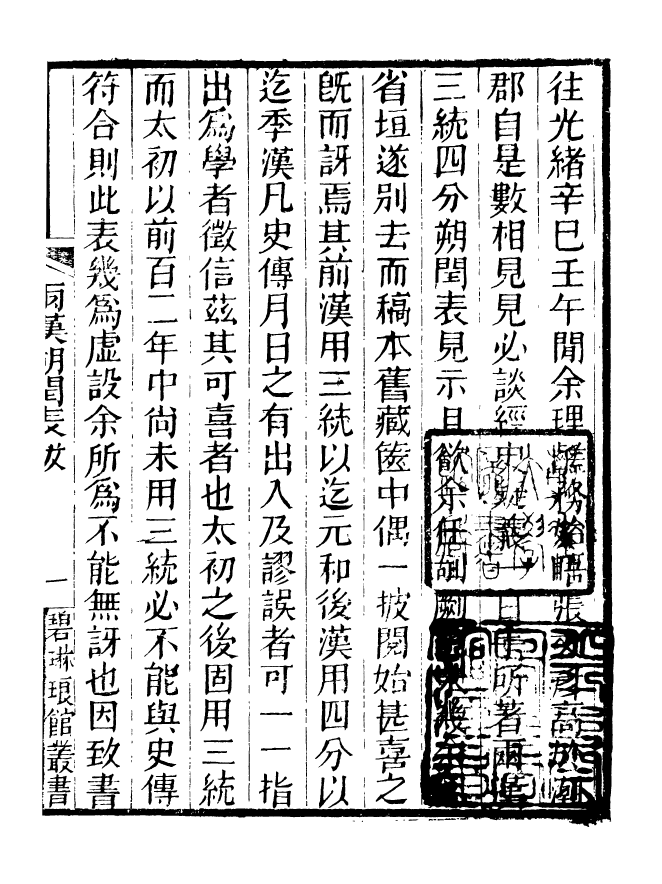 往光緒辛巳壬午間余理鹺務始晤張 君 商於潮
郡自是數相見見必談經史疑義一日 所著兩漢
三統四分朔閏表見示且欲余任剞劂
省垣遂別去而稿本舊藏篋中偶一披閱始甚喜之
旣而訝焉其前漢用三統以迄元和後漢用四分以
迄季漢凡史傳月日之有出入及謬誤者可一一指
出爲學者徵信茲其可喜者也太初之後固用三統
而太初以前百二年中尚未用三統必不能與史傳
符合則此表幾爲虛設余所爲不能無訝也因致書
兩漢朔閏表攷
一
碧琳琅館叢書